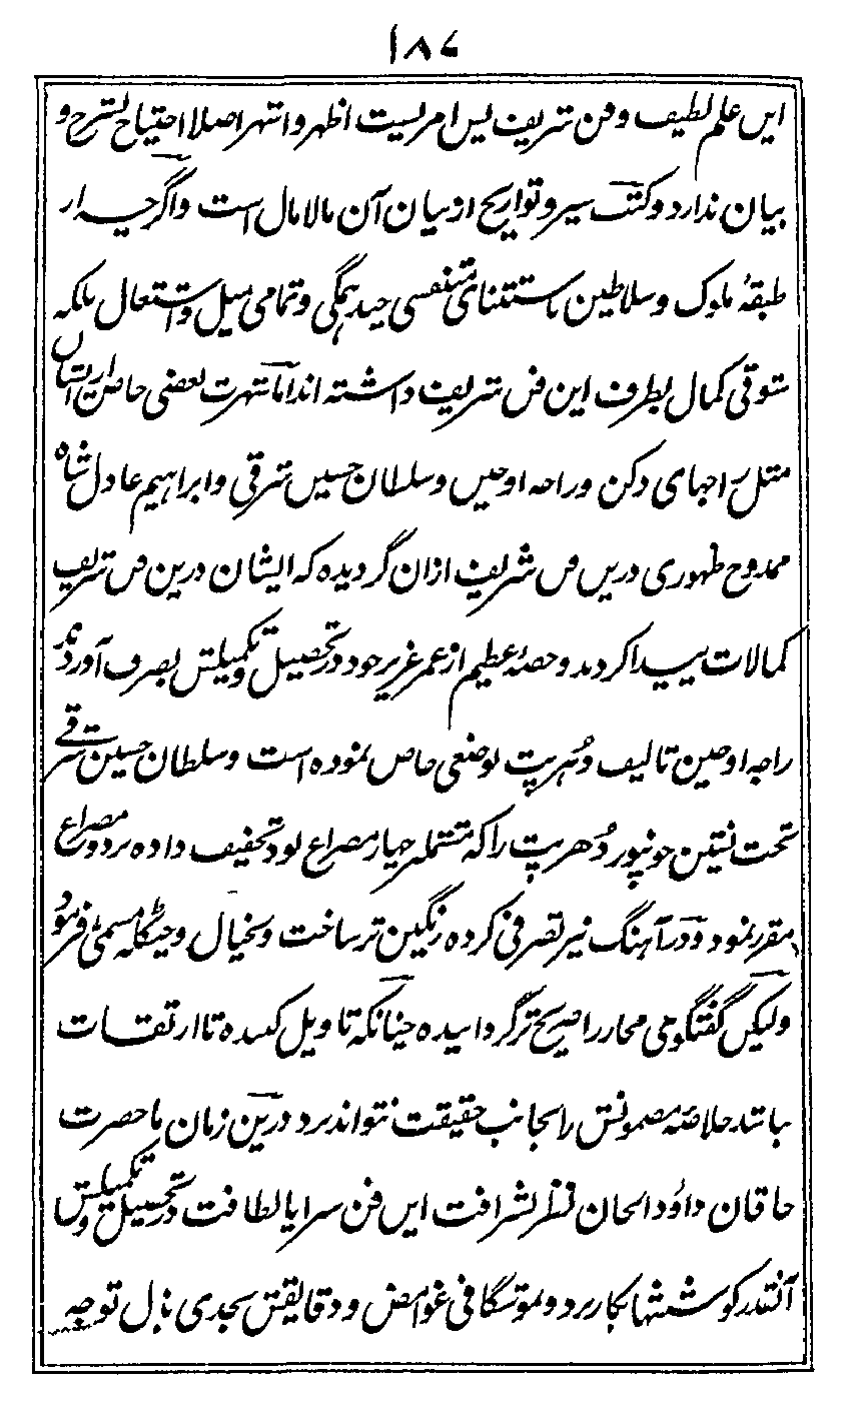 ۱۸۷
این علم لطیف و فن شریف پس امریست اظهر و اشهر اصلا احتیاج بشرح و
بیان ندارد و کتب سیر و تواریخ از بیان آن مالامال است و اگرچه از
طبقهٔ ملوک و سلاطین باستثنای متنفسی چند همگی و تمامی میل و اشتعال بلکه
شوقی کمال بطرف این فن شریف داشته اند اما شهرت بعضی خاص از ایشان
مثل راجهای دکن و راجه اوجین و سلطان حسین شرقی و ابراهیم عادل شاه
ممدوح ظهوری درین فن شریف ازان گردیده که ایشان درین فن شریف
کمالات پیدا کردند و حصهٔ عظیم از عمر عزیز خود در تحصیل و تکمیلش بصرف آوردند
راجه اوجین تالیف دُهرپت بوضعی خاص نموده است و سلطان حسین شرقی
تخت نشین جونپور دُهرپت را که مشتملبر چهار مصراع بود تخفیف داده بر دو مصراع
مقرر نمود و در آهنگ نیز تصرفی کرده رنگین تر ساخت و بخیال و چٹکله مسمیٰ فرمود
ولیکن گفتگوی مجاز را صریح تر گردانیده چنانکه تاویل کننده تا ارتقات
باشد خلاصهٔ مضمونش را بجانب حقیقت نتواند برد درین زمان ما حضرت
خاقان داؤد الحان نظر بشرافت این فن سراپا لطافت در تحصیل و تکمیلش
آنقدر کوششها بکار برد و بموشگافی غوامض و دقایقش بحدی بذل توجه